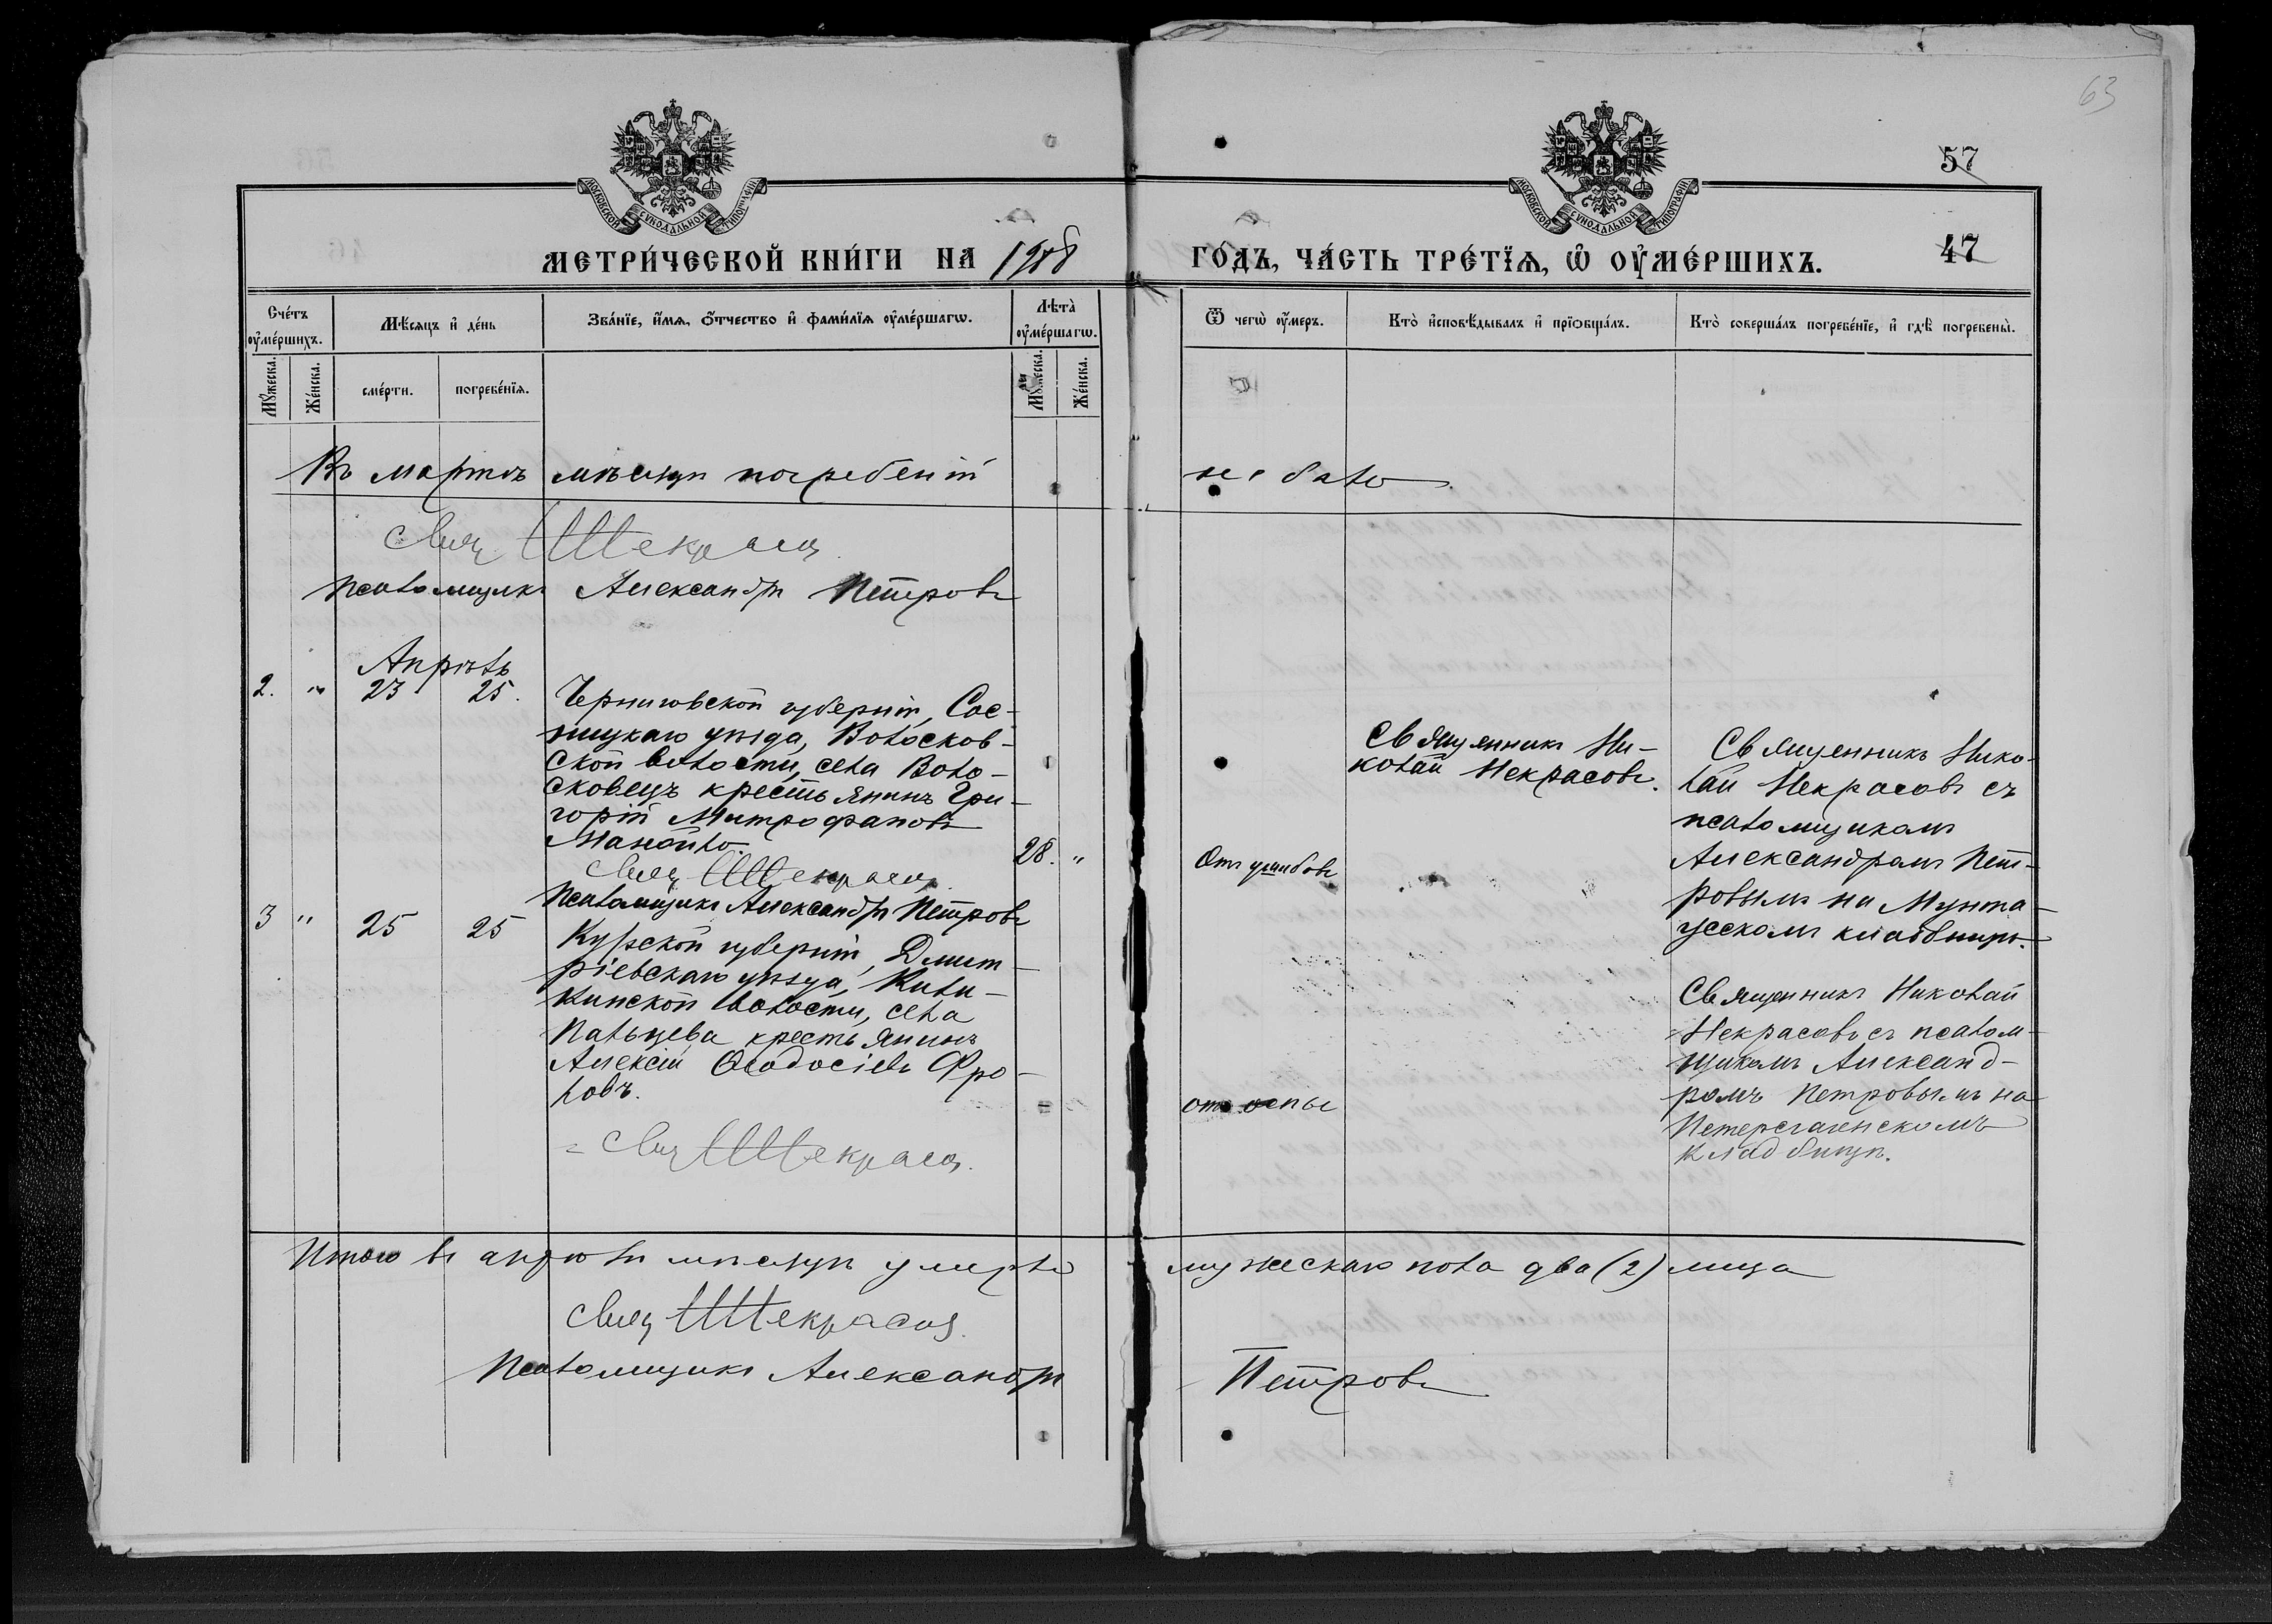 63
57
МОСКОВСКОЙ СУНОДАЛЬНОЙ ТИПОГРАФІИ
МОСКОВСКОЙ СУНОДАЛЬНОЙ ТИПОГРАФІИ
МЕТРИ́ЧЕСКОЙ КНИ́ГИ НА 1908
ГО́ДЪ, ЧА́СТЬ ТРЕ́ТЇѦ, Ѡ҆ ОУ҆МЕ́РШИХЪ.
47
Сче́тъ оу҆ме́ршихъ.
Мѣ́сяцъ и҆ де́нь
Зва́нїе, и҆́мѧ, ѻ҆́тчество и҆ фамі́лїѧ оу҆ме́ршагѡ.
Лѣ̑та̀ оу҆ме́ршагѡ.
Ѿ чегѡ̀ оу҆́меръ.
Кто̀ и҆сповѣ́дывалъ и҆ прїѡбща́лъ.
Кто̀ соверша́лъ погребе́нїе, и҆ гдѣ̀ погребены̀.
Мꙋ́жеска.
Же́нска.
сме́рти.
погребе́нїѧ.
Мꙋ́жеска.
Же́нска.
Въ мартѣ мѣсяцѣ погребеній не было
Свящ. Н Некрасов
Псаломщикъ Александръ Петровъ
Апрѣль
2. " 23 25.
Черниговской губерніи, Сос-
ницкаго уѣзда, Волосков-
ской волости, села Воло-
сковецъ крестьянинъ Гри-
горій Митрофановъ
Манойло.
28. "
Отъ ушибовъ
Священникъ Ни-
колай Некрасовъ.
Священникъ Нико-
лай Некрасовъ съ
псаломщикомъ
Александромъ Пет-
ровымъ на Мунта-
усскомъ кладбищѣ.
Свящ Н Некрасов
Псаломщикъ Александръ Петровъ
3 " 25 25
Курской губерніи, Дмит-
ріевскаго уѣзда,
волости, села
Пальцева крестьянинъ
Алексій Ѳеодосіевъ Фро-
ловъ.
отъ оспы
Священникъ Николай
Некрасовъ съ псалом-
щикомъ Александ-
ромъ Петровымъ на
кладбищѣ.
Свящ Н Некрасов.
Итого въ апрѣлѣ мѣсяцѣ умерло мужескаго пола два (2) лица
Свящ Н Некрасов
Псаломщикъ Александръ Петровъ